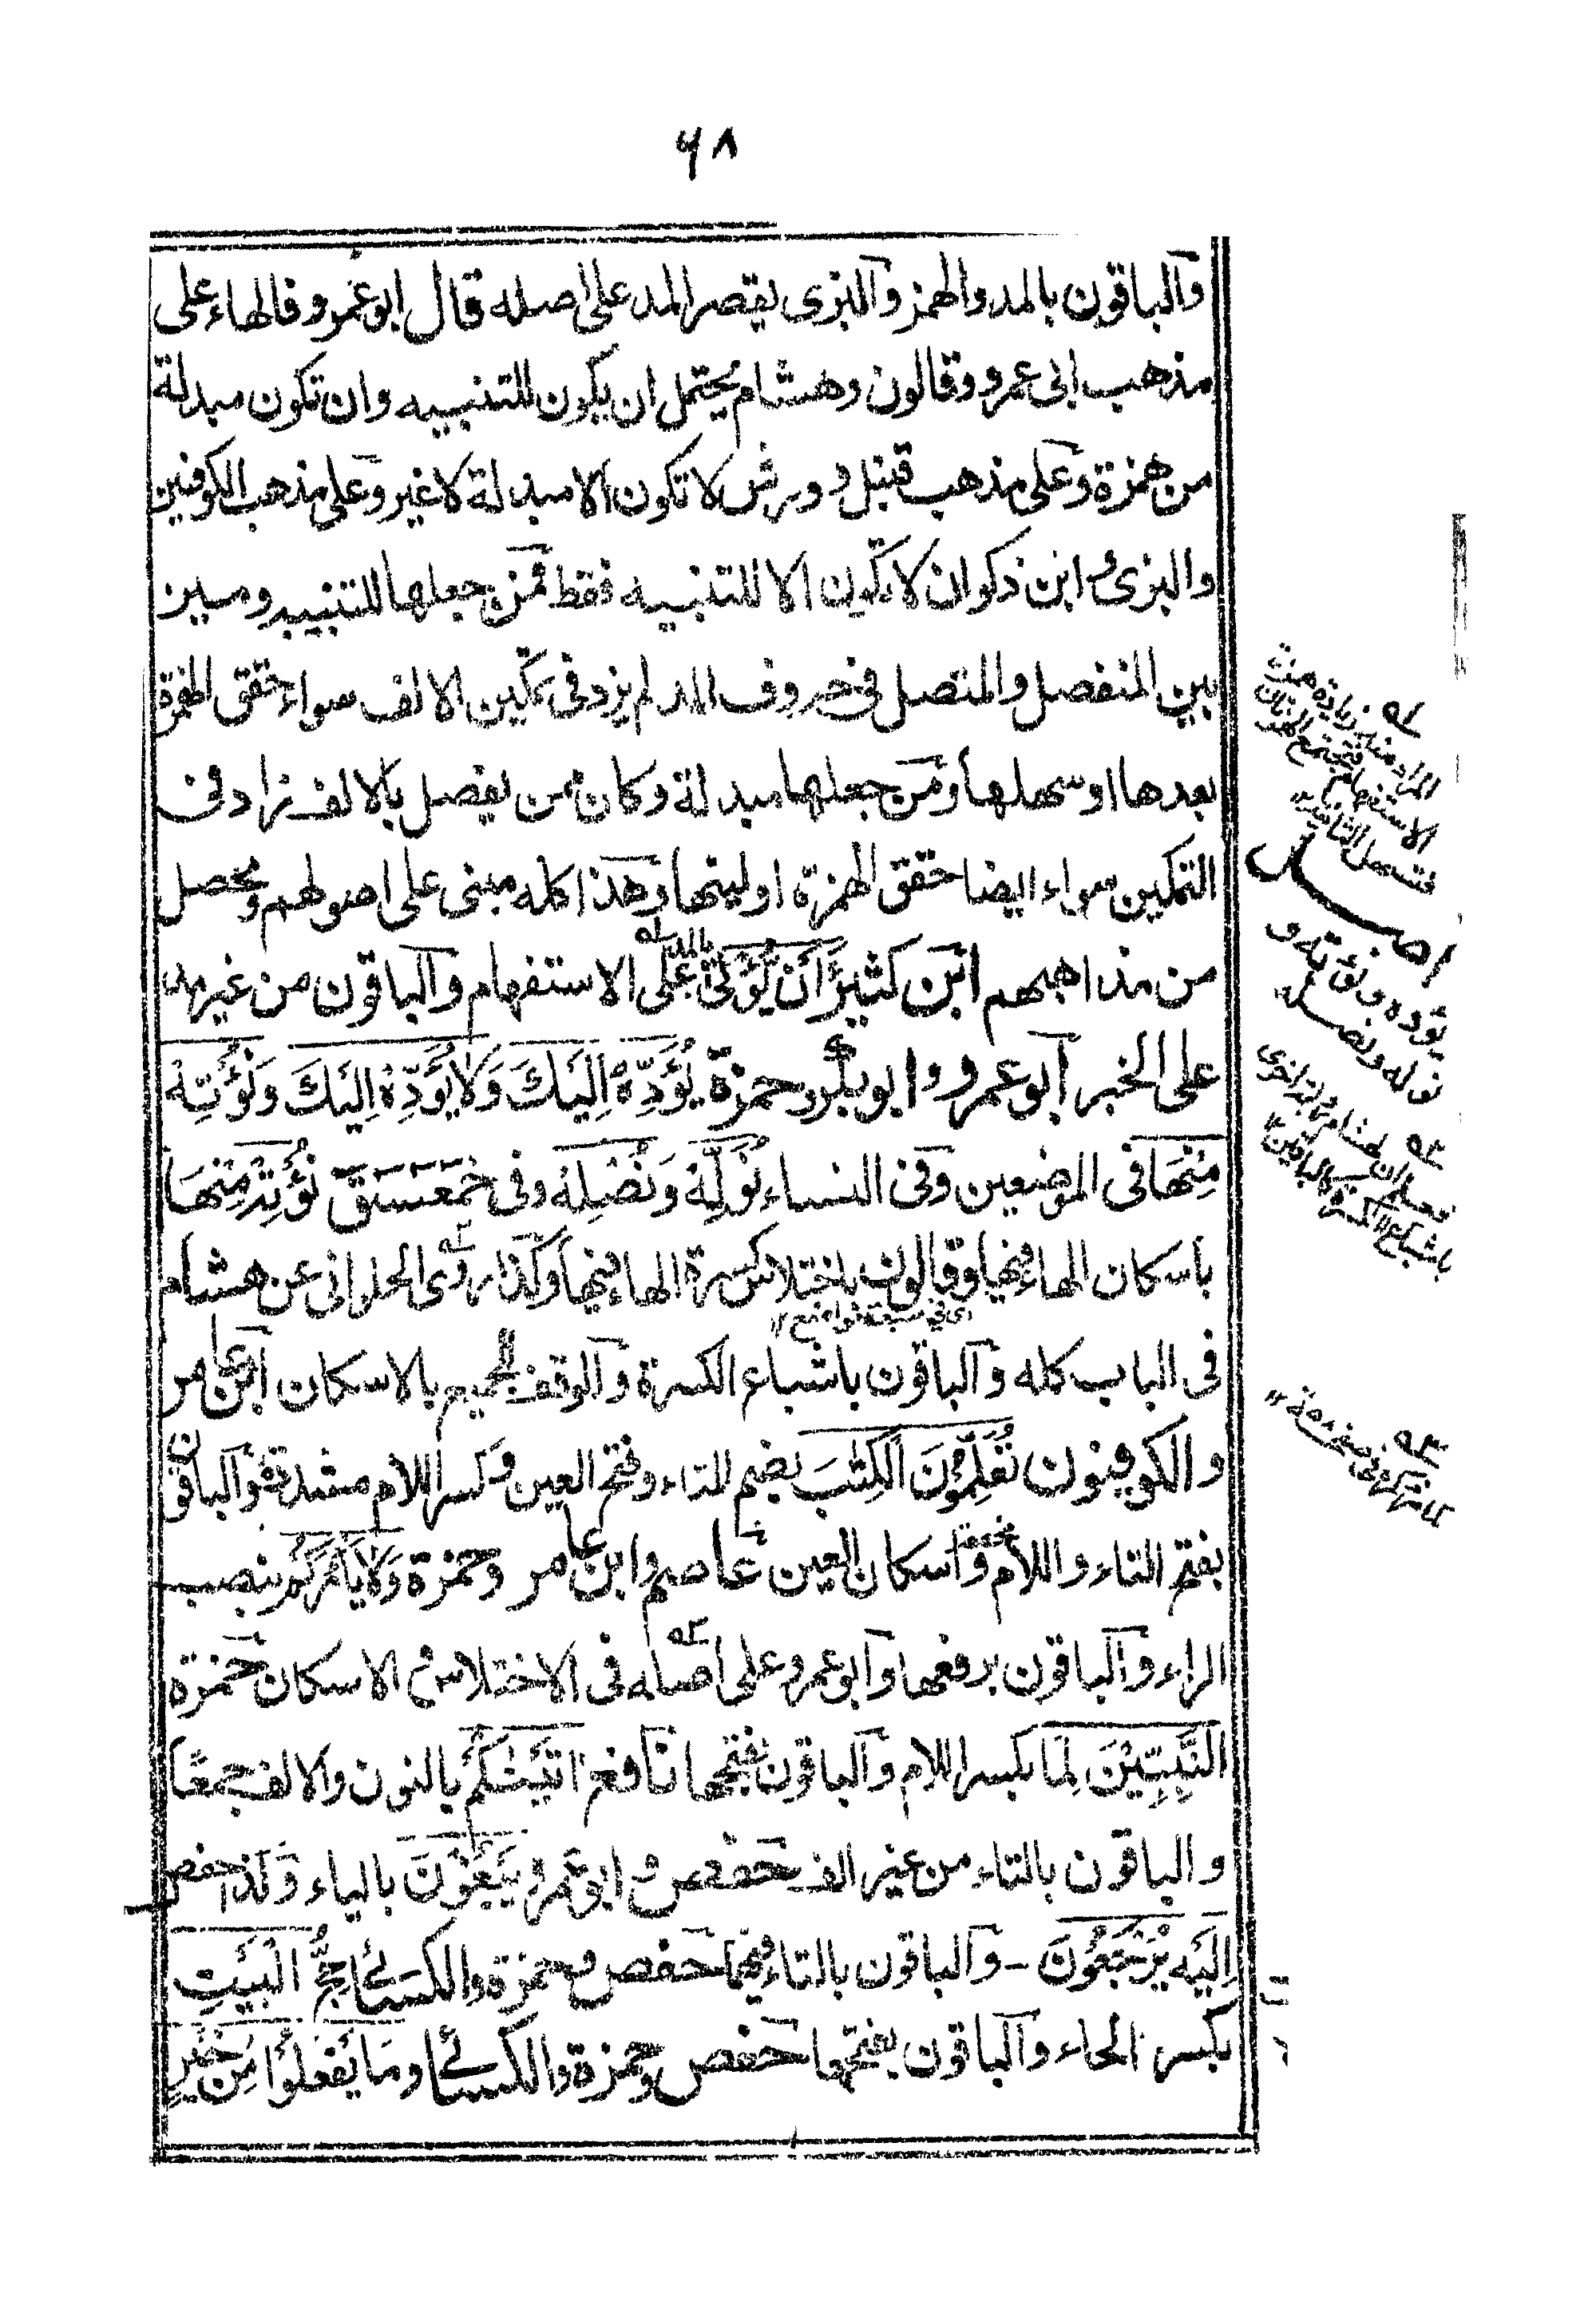 ٦٨
والباقون بالمد والهمز والبزى يقصر المد على اصله قال ابو عمرو فالهاء على
مذهب ابى عمرو وقالون وهشام يحتمل ان يكون للتنبيه وان تكون مبدلة
من همزة وعلى مذهب قنبل و ورش لا تكون الا مبدلة لا غير وعلى مذهب الكوفين
والبزى و ابن ذكوان لا تكون الا للتنبيه فقط فمن جعلها للتنبيه وميز
بين المنفصل والمتصل فى حروف المد لم يزد فى تمكين الالف سواء حقق الهمزة
بعدها او سهلها ومن جعلها مبدلة وكان ممن يفصل بالالف زاد فى
التمكين سواء ايضا حقق الهمزة او لينها وهذا كله مبنى على اصولهم ومحصل
من مذاهبهم ابن كثير أَنْ يُّؤْتٰى بالمد على الاستفهام والباقون من غير مد
على الخبر ابو عمرو و ابو بكر وحمزة يُؤَدِّهْ اِلَيْكَ وَلَا يُؤَدِّهْ اِلَيْكَ وَنُؤْتِهْ
مِنْهَا فى الموضعين وفى النساء نُوَلِّهْ وَنُصْلِهْ وفى حٰمٓعٓسٓقٓ نُؤْتِهْ مِنْهَا
باسكان الهاء فيها وقالون باختلاس كسرة الهاء فيها وكذا روى الحلوانى عن هشام
اى فى سبعة مواضع ١٢
فى الباب كله والباقون باشباع الكسرة والوقف للجميع بالاسكان ابن عامر
والكوفيون تُعَلِّمُوْنَ الْكِتٰبَ بضم التاء وفتح العين وكسر اللام مشددة والباقون
بفتح التاء واللام مخففة واسكان العين عاصم وابن عامر وحمزة وَلَا يَأْمُرَكُمْ بنصب
الراء والباقون برفعها وابو عمرو على اصله فى الاختلاس و الاسكان حمزة
النَّبِيّيْنَ لِمَا بكسر اللام والباقون بفتحها نافع اٰتَيْنٰكُمْ بالنون والالف جمعًا
والباقون بالتاء من غير الف حفص و ابو عمرو يَبْغُوْنَ بالياء وكذا حفص
اِلَيْهِ يُرْجَعُوْنَ - والباقون بالتاء فيهما حفص وحمزة والكسائى حِجُّ الْبَيْتِ
بكسر الحاء والباقون بفتحها حفص وحمزة والكسائى وما يَفْعَلُوْا مِنْ خَيْرٍ
الاستفهام
فتسهل الثانية ١٢
يؤده ونؤته و
نوله ونصله ١٢